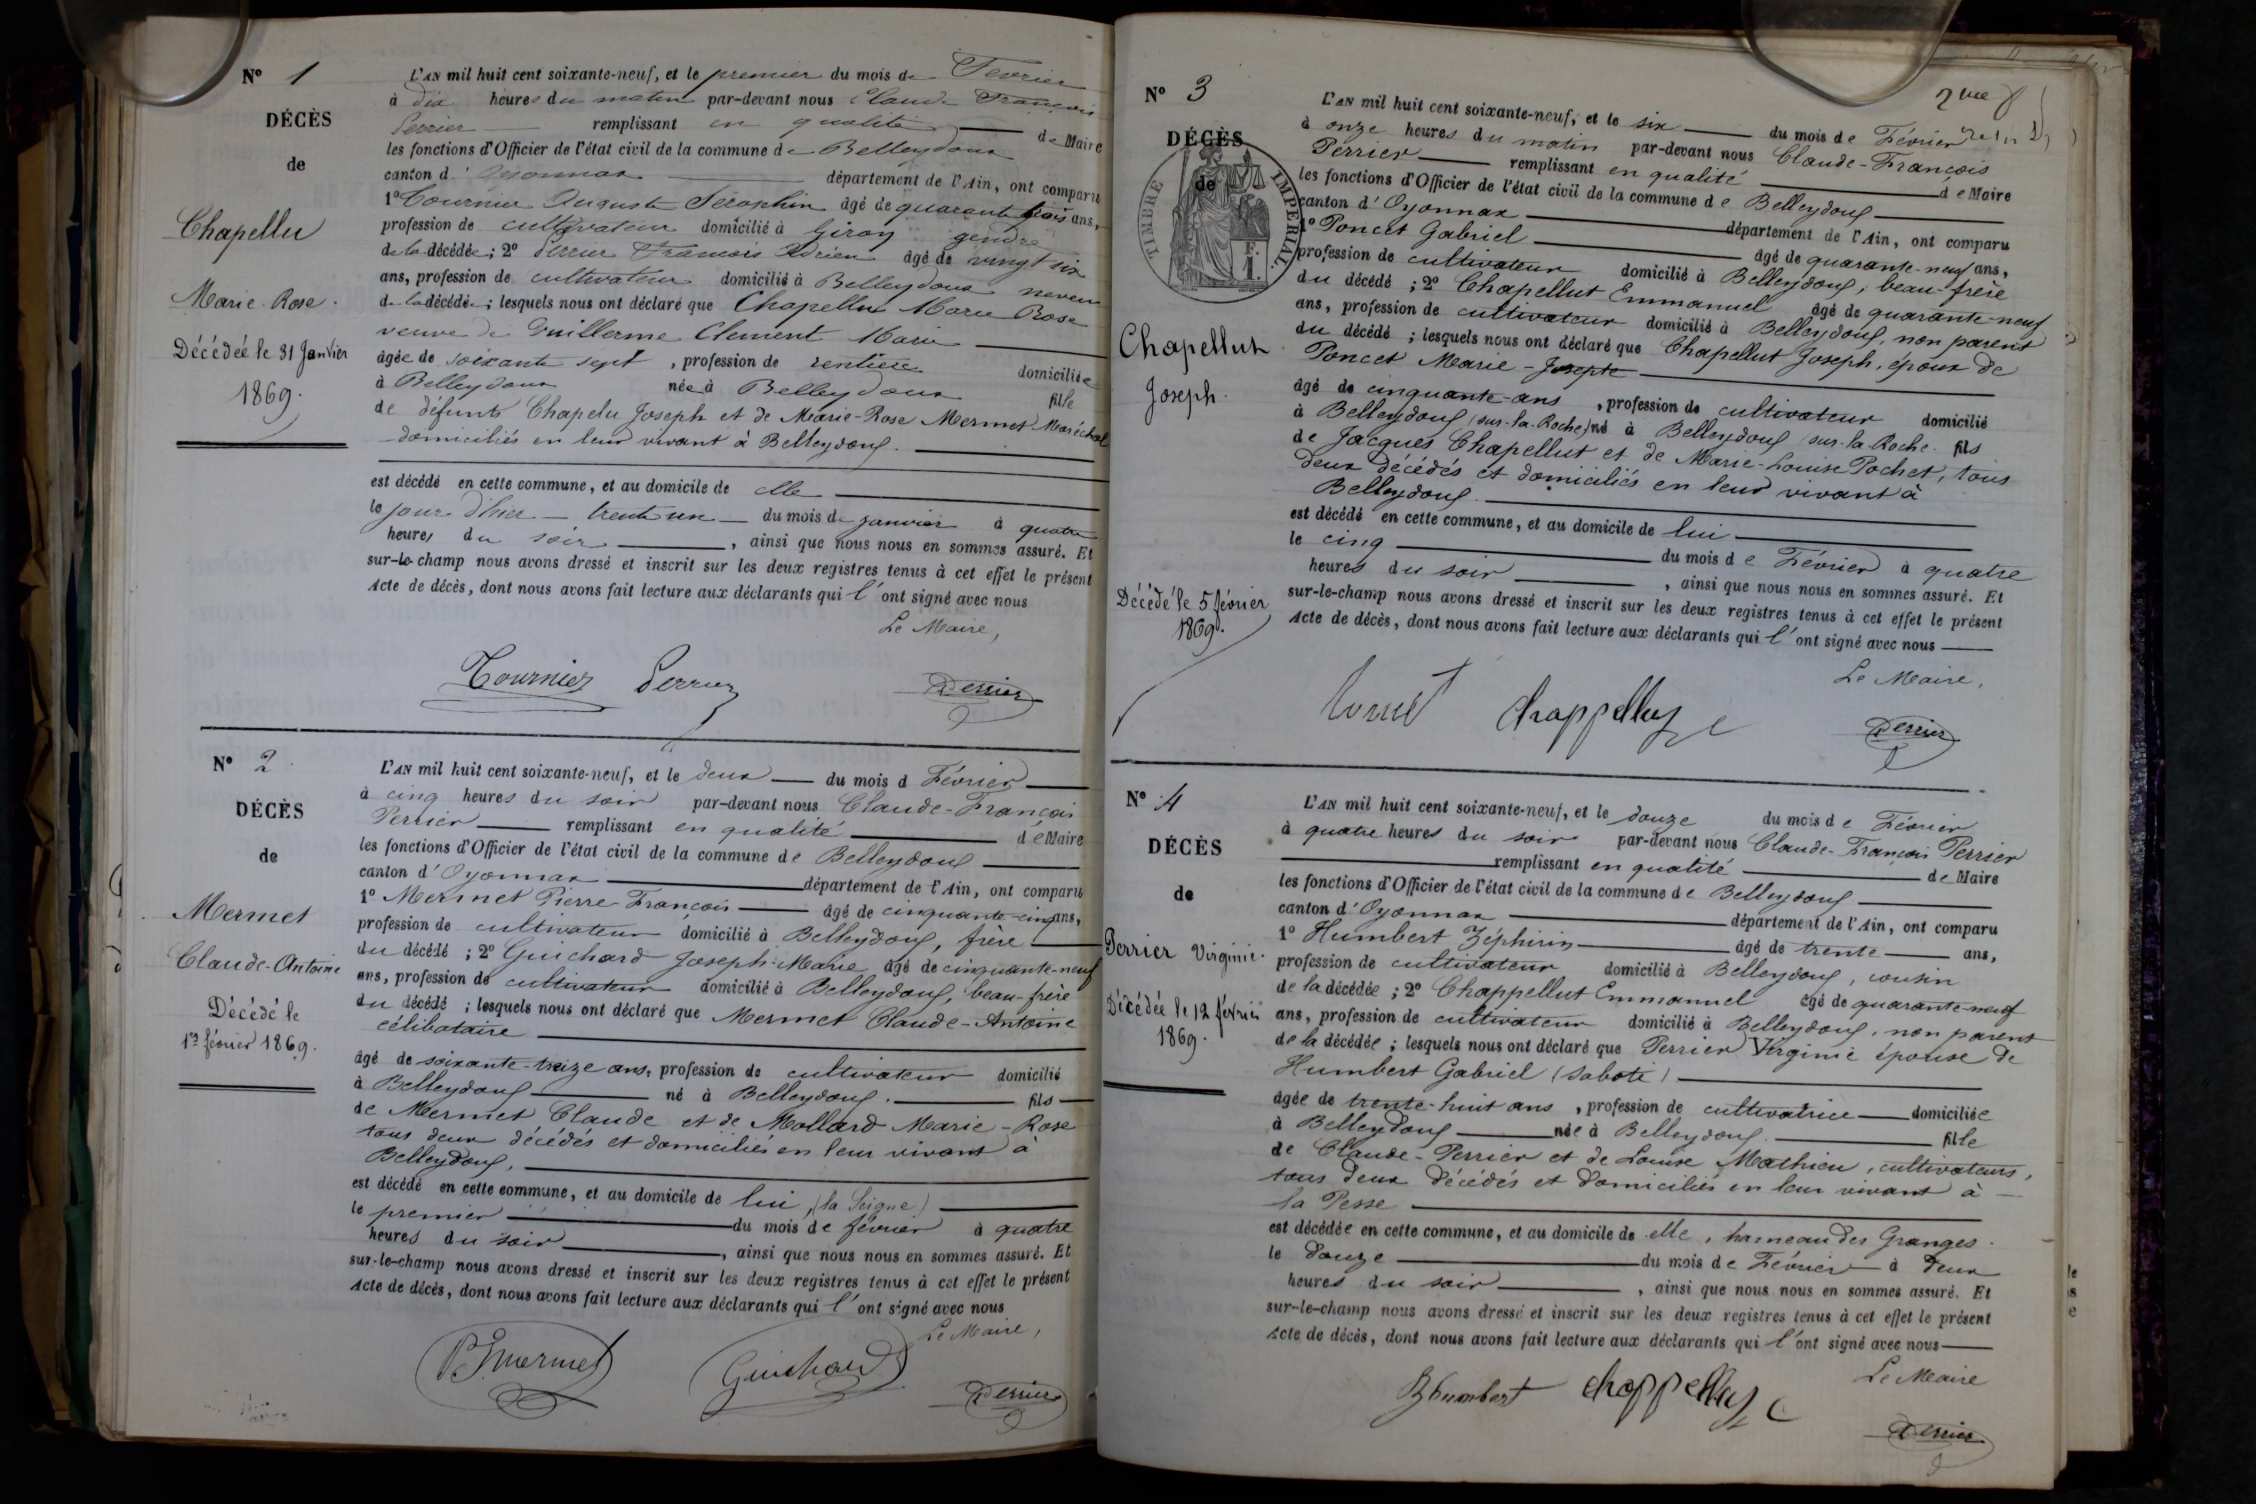 N° 1
DÉCÈS
de
Chapellu
Marie-Rose.
Décédée le 31 Janvier
1869.
L'AN mil huit cent soixante-neuf, et le premier du mois de Février
à dix heures du matin par-devant nous Claude François
Perrier remplissant en qualité de Maire
les fonctions d'Officier de l'état civil de la commune de Belleydoux
canton d'Oyonnax département de l'Ain, ont comparu
1° Tournier Auguste Séraphin âgé de quarante trois ans,
profession de cultivateur domicilié à Giron gendre
de la décédée; 2° Perrier François Adrien âgé de vingt six
ans, profession de cultivateur domicilié à Belleydoux neveu
de la décédée; lesquels nous ont déclaré que Chapellu Marie Rose
veuve de Guillerme Clement Marie
âgée de soixante sept, profession de rentière domiciliée
à Belleydoux née à Belleydoux fille
de défunts Chapelu Joseph et de Marie-Rose Mermet Maréchal
domiciliés en leur vivant à Belleydoux.
est décédé en cette commune, et au domicile de elle
le jour d'hier trente un du mois de janvier à quatre
heures du soir, ainsi que nous nous en sommes assuré. Et
sur-le-champ nous avons dressé et inscrit sur les deux registres tenus à cet effet le présent
Acte de décès, dont nous avons fait lecture aux déclarants qui l'ont signé avec nous
Le Maire,
Tournier Perrier Perrier
N° 2
DÉCÈS
de
Mermet
Claude-Antoine
Décédé le
1er février 1869.
L'AN mil huit cent soixante-neuf, et le deux du mois d Février
à cinq heures du soir par-devant nous Claude-François
Perrier remplissant en qualité de Maire
les fonctions d'Officier de l'état civil de la commune de Belleydoux
canton d'Oyonnax département de l'Ain, ont comparu
1° Mermet Pierre François âgé de cinquante-cinq ans,
profession de cultivateur domicilié à Belleydoux, frère
du décédé; 2° Guichard Joseph-Marie âgé de cinquante-neuf
ans, profession de cultivateur domicilié à Belleydoux, beau-frère
du décédé; lesquels nous ont déclaré que Mermet Claude-Antoine
célibataire
âgé de soixante-treize ans, profession de cultivateur domicilié
à Belleydoux né à Belleydoux. fils
de Mermet Claude et de Mollard Marie-Rose
tous deux décédés et domiciliés en leur vivant à
Belleydoux,
est décédé en cette commune, et au domicile de lui, (la Seigne)
le premier du mois de février à quatre
heures du soir, ainsi que nous nous en sommes assuré. Et
sur-le-champ nous avons dressé et inscrit sur les deux registres tenus à cet effet le présent
Acte de décès, dont nous avons fait lecture aux déclarants qui l'ont signé avec nous
Le Maire,
Mermet Guichard Perrier
N° 3
DÉCÈS
de
TIMBRE IMPÉRIAL.
F.
1.
Chapellut
Joseph.
Décédé le 5 février
1869.
L'AN mil huit cent soixante-neuf, et le six du mois de Février
à onze heures du matin par-devant nous Claude-François
Perrier remplissant en qualité de Maire
les fonctions d'Officier de l'état civil de la commune de Belleydoux
canton d'Oyonnax département de l'Ain, ont comparu
1° Poncet Gabriel âgé de quarante-neuf ans,
profession de cultivateur domicilié à Belleydoux, beau-frère
du décédé; 2° Chapellut Emmanuel âgé de quarante-neuf
ans, profession de cultivateur domicilié à Belleydoux, non parent
du décédé; lesquels nous ont déclaré que Chapellut Joseph, époux de
Poncet Marie-Josepte
âgé de cinquante-ans, profession de cultivateur domicilié
à Belleydoux (sur-la-Roche) né à Belleydoux sur-la-Roche. fils
de Jacques Chapellut et de Marie-Louise Pochet, tous
deux décédés et domiciliés en leur vivant à
Belleydoux.
est décédé en cette commune, et au domicile de lui
le cinq du mois de Février à quatre
heures du soir, ainsi que nous nous en sommes assuré. Et
sur-le-champ nous avons dressé et inscrit sur les deux registres tenus à cet effet le présent
Acte de décès, dont nous avons fait lecture aux déclarants qui l'ont signé avec nous
Le Maire,
Poncet chappelluz Perrier
N° 4
DÉCÈS
de
Perrier Virginie.
Décédée le 12 février
1869.
L'AN mil huit cent soixante-neuf, et le douze du mois de Février
à quatre heures du soir par-devant nous Claude-François Perrier
remplissant en qualité de Maire
les fonctions d'Officier de l'état civil de la commune de Belleydoux
canton d'Oyonnax département de l'Ain, ont comparu
1° Humbert Zéphirin âgé de trente ans,
profession de cultivateur domicilié à Belleydoux, cousin
de la décédée; 2° Chappellut Emmanuel âgé de quarante-neuf
ans, profession de cultivateur domicilié à Belleydoux, non parent
de la décédée; lesquels nous ont déclaré que Perrier Virginie épouse de
Humbert Gabriel (saboti)
âgée de trente-huit ans, profession de cultivatrice domiciliée
à Belleydoux née à Belleydoux. fille
de Claude-Perrier et de Louise Mathieu, cultivateurs,
tous deux décédés et domiciliés en leur vivant à
la Pesse
est décédée en cette commune, et au domicile de elle, hameau des Granges.
le douze du mois de Février à deux
heures du soir, ainsi que nous nous en sommes assuré. Et
sur-le-champ nous avons dressé et inscrit sur les deux registres tenus à cet effet le présent
Acte de décès, dont nous avons fait lecture aux déclarants qui l'ont signé avec nous
Le Maire
Zhumbert chappelluz Perrier